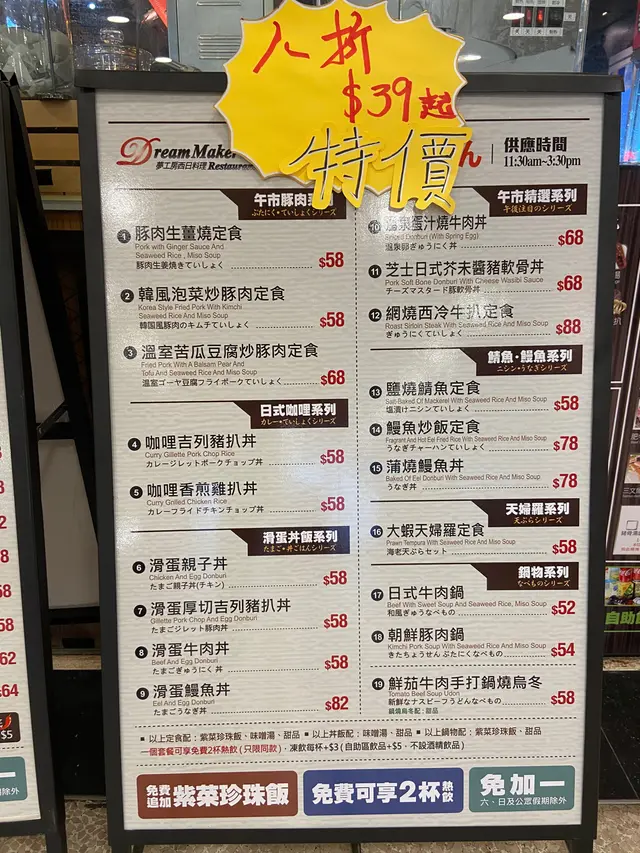 八折
$39起
特價
Dream Maker
夢工房西日料理 Restaurant
ん
供應時間
11:30am~3:30pm
午市豚肉
ぶたにく•ていしょくシリーズ
1 豚肉生薑燒定食
Pork with Ginger Sauce And
Seaweed Rice , Miso Soup
豚肉生姜焼きていしょく $58
2 韓風泡菜炒豚肉定食
Korea Style Fried Pork With Kimchi
Seaweed Rice And Miso Soup
韓国風豚肉のキムチていしょく $58
3 溫室苦瓜豆腐炒豚肉定食
Fried Pork With A Balsam Pear And
Tofu And Seaweed Rice And Miso Soup
温室ゴーヤ豆腐フライポークていしょく $68
日式咖哩系列
カレー•ていしょくシリーズ
4 咖哩吉列豬扒丼
Curry Gillette Pork Chop Rice
カレージレットポークチョップ丼 $58
5 咖哩香煎雞扒丼
Curry Grilled Chicken Rice
カレーフライドチキンチョップ丼 $58
滑蛋丼飯系列
たまご•丼ごはんシリーズ
6 滑蛋親子丼
Chicken And Egg Donburi
たまご親子丼(チキン) $58
7 滑蛋厚切吉列豬扒丼
Gillette Pork Chop And Egg Donburi
たまごジレット豚肉丼 $58
8 滑蛋牛肉丼
Beef And Egg Donburi
たまごぎゅうにく丼 $58
9 滑蛋鰻魚丼
Eel And Egg Donburi
たまごうなぎ丼 $82
午市精選系列
午後注目のシリーズ
10 溫泉蛋汁燒牛肉丼
Donburi (With Spring Egg)
温泉卵ぎゅうにく丼 $68
11 芝士日式芥末醬豬軟骨丼
Pork Soft Bone Donburi With Cheese Wasibi Sauce
チーズマスタード豚軟骨丼 $68
12 網燒西冷牛扒定食
Roast Sirloin Steak With Seaweed Rice And Miso Soup
ぎゅうにくていしょく $88
鯖魚·鰻魚系列
ニシン•うなぎシリーズ
13 鹽燒鯖魚定食
Salt-Baked Of Mackerel With Seaweed Rice And Miso Soup
塩漬けニシンていしょく $58
14 鰻魚炒飯定食
Fragrant And Hot Eel Fried Rice With Seaweed Rice And Miso Soup
うなぎチャーハンていしょく $78
15 蒲燒鰻魚丼
Baked Of Eel Donburi With Seaweed Rice And Miso Soup
うなぎ丼 $78
天婦羅系列
天ぷらシリーズ
16 大蝦天婦羅定食
Prawn Tempura With Seaweed Rice And Miso Soup
海老天ぷらセット $58
鍋物系列
なべものシリーズ
17 日式牛肉鍋
Beef With Sweet Soup And Seaweed Rice, Miso Soup
和風ぎゅうなべもの $52
18 朝鮮豚肉鍋
Kimchi Pork Soup With Seaweed Rice And Miso Soup
きたちょうせん ぶたにくなべもの $54
19 鮮茄牛肉手打鍋燒烏冬
Tomato Beef Soup Udon
新鮮なナスビーフうどんなべもの $58
鍋燒烏冬配 : 甜品
■ 以上定食配 : 紫菜珍珠飯、味噌湯、甜品 ■ 以上丼飯配 : 味噌湯、甜品 ■ 以上鍋物配 : 紫菜珍珠飯、甜品
一個套餐可享免費2杯熱飲 ( 只限同款 )，凍飲每杯+$3 ( 自助區飲品+$5，不設酒精飲品 )
免費追加 紫菜珍珠飯
免費可享2杯熱飲
免加一
六、日及公眾假期除外